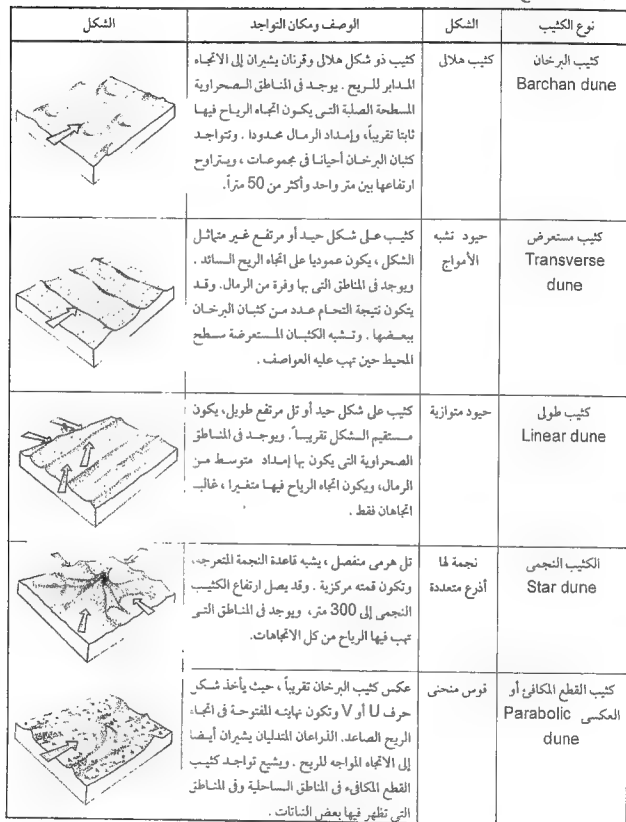 نوع الكثيب	الشكل	الوصف ومكان التواجد	الشكل
كثيب البرخان
Barchan dune
كثيب هلالى
كثيب ذو شكل هلالى وقرنان يشيران إلى الاتجاه
المدابر للريح . يوجد فى المناطق الصحراوية
المسطحة الصلبة التى يكون اتجاه الرياح فيها
ثابتا تقريباً، وإمداد الرمال محدودا . وتتواجد
كثبان البرخان أحيانا فى مجموعات ، ويتراوح
ارتفاعها بين متر واحد وأكثر من 50 متراً.
كثيب مستعرض
Transverse
dune
حيود تشبه
الأمواج
كثيب على شكل حيد أو مرتفع غير متماثل
الشكل ، يكون عموديا على اتجاه الريح السائد .
ويوجد فى المناطق التى بها وفرة من الرمال. وقد
يتكون نتيجة التحام عدد من كثبان البرخان
ببعضها . وتشبه الكثبان المستعرضة سطح
المحيط حين تهب عليه العواصف .
كثيب طولى
Linear dune
حيود متوازية
كثيب على شكل حيد أو تل مرتفع طويل، يكون
مستقيم الشكل تقريباً . ويوجد فى المناطق
الصحراوية التى يكون بها إمداد متوسط من
الرمال، ويكون اتجاه الرياح فيها متغيرا ، غالب
اتجاهان فقط .
الكثيب النجمى
Star dune
نجمة لها
أذرع متعددة
تل هرمى منفصل ، يشبه قاعدة النجمة المتعرجة،
وتكون قمته مركزية . وقد يصل ارتفاع الكثيب
النجمى إلى 300 متر، ويوجد فى المناطق التى
تهب فيها الرياح من كل الاتجاهات.
كثيب القطع المكافئ أو
العكسى Parabolic
dune
قوس منحنى
عكس كثيب البرخان تقريباً ، حيث يأخذ شكل
حرف U أو V وتكون نهايته المفتوحة فى اتجاه
الريح الصاعد. الذراعان المتدليان يشيران أيضا
إلى الاتجاه المواجه للريح . ويشيع تواجد كثيب
القطع المكافىء فى المناطق الساحلية وفى المناطق
التى تظهر فيها بعض النباتات .